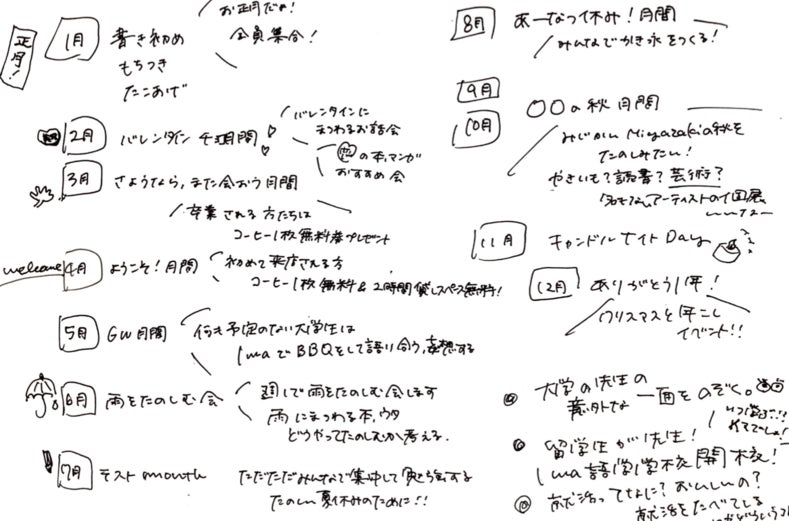 正月!
1月
書き初め
もちつき
たこあげ
お正月だョ!
全員集合!
2月
バレンタイン 千週間
バレンタインに
まつわるお話会
の本、マンガ
おすすめ会
3月
さようなら、また会おう月間
卒業される方たちは
コーヒー1枚無料券プレゼント
welcome
4月
ようこそ!月間
初めて来店される方
コーヒー1枚無料&2時間貸しスペース無料!
5月
GW月間
何も予定のない大学生は
1waでBBQをして語り合う、妄想する
6月
雨をたのしむ会
週1で雨をたのしむ会します
雨にまつわる本、ウタ
どうやってたのしむか考える
7月
テストmonth
ただただみんなで集中して勉強する
たのしい夏休みのために!!
8月
あーなつ休み!月間
みんなでかき氷をつくる!
9月
10月
〇〇の秋月間
みじかいMiyazakiの秋を
たのしみたい!
やきいも?読書?芸術?
アーティストの個展
11月
キャンドルナイトDay
12月
ありがとう1年!
クリスマスと年こし
イベント!!
大学の先生の
意外な一面をのぞく。
留学生が先生!
1wa語学学校開校!
就活ってなに?おいしいの?
就活をたべてしる